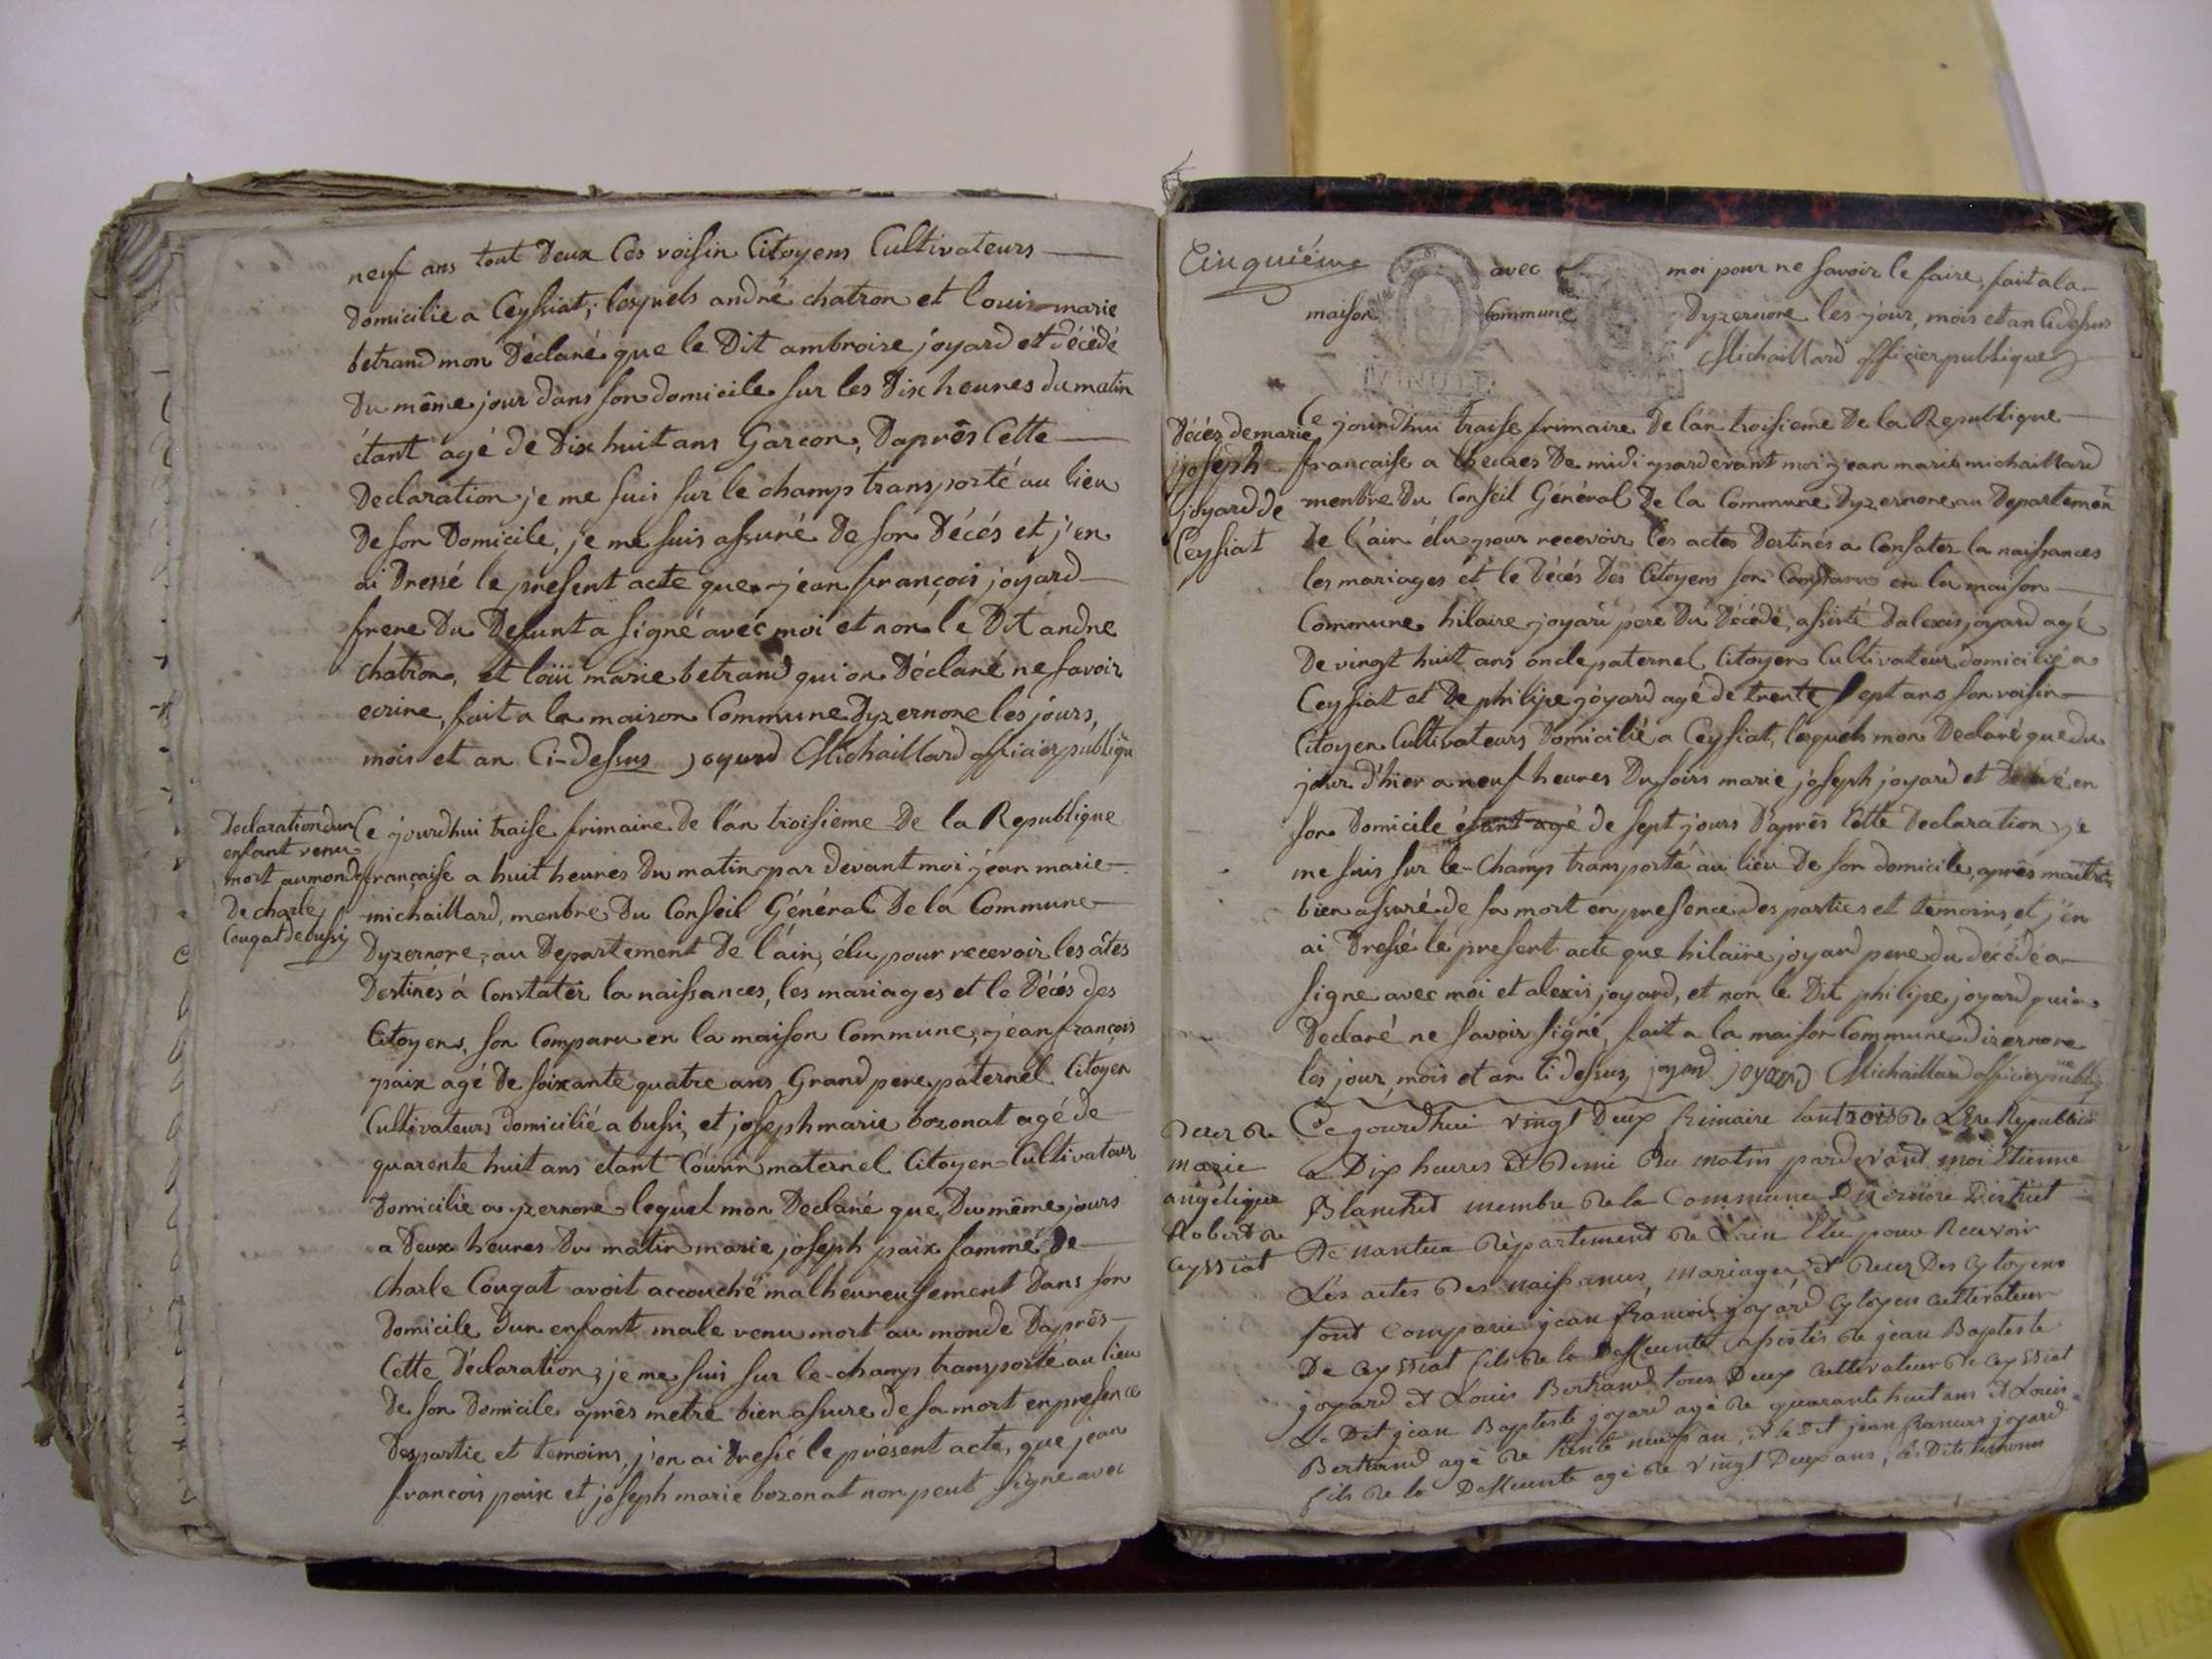 neuf ans tout Deux Ces voisin Citoyens Cultivateurs
Domicilie a Ceyssiat; lesquels andré chatron et louis marie
betrand mon Déclaré que le Dit ambroise joyard et décédé
Du même jour dans son domicile sur les Dix heures du matin
étant agé de Dix huit ans Garcon, Daprès Cette
Declaration je me suis sur le champ transporté au lieu
De son Domicile, je me suis assuré De son Décés et j'en
ai Dressé le present acte que jean françois joyard
frere Du Defunt a signé avec moi et non le Dit andre
chatron, et loüi marie betrand qui on Déclaré ne savoir
ecrire, fait a la maison Commune Dyzernore les jours,
mois et an Ci-Dessus joyard Michaillard officier publiqu
Declaration dun
enfant venu
mort au monde
De charle
Cougat de bussy
Ce jourdhui traise frimaire de l'an troisieme De la Republique
française a huit heures Du matin par devant moi jean marie
michaillard, menbre Du Conseil Général De la Commune
Dyzernore, au Departement De l'ain, élu pour recevoir les âtes
Destinés à Constater la naissances, les mariages et le Décés des
Citoyens, son Comparu en la maison Commune, jean françois
paix agé De soixante quatre ans Grand pere paternel Citoyen
Cultivateurs domicilié a bussi, et joseph marie bozonat agé de
quarente huit ans etant Cousin maternel Citoyen Cultivateur
Domicilié a yzernore lequel mon Declaré que Du même jours
a Deux heures Du matin marie joseph paix famme De
Charle Cougat avoit accouché malheureusement Dans son
Domicile Dun enfant male venu mort au monde Daprès
Cette Déclaration, je me suis sur le-champ transporté au lieu
De son Domicile après metre bien assure de sa mort en presence
Des partie et temoins, j'en ai Dressé le présent acte, que jean
francois paix et joseph marie bozonat non peut signe avec
Cinquiéme
avec moi pour ne savoir le faire, fait a la
maison Commune Dyzernore les jour, mois et an Cidessus
Michaillard officier publique
Décés de marie
joseph
joyard de
Ceyssiat
Ce jourdhui traise frimaire De l'an troisieme De la Republique
française a heures De midi pardevant moi jean marie michaillard
menbre Du Conseil Général De la Commune Dyzernore au Departemen
De l'ain élu pour recevoir les actes Destinés a Consater la naissances
les mariages et le Décés Des Citoyens son Comparu en la maison
Commune hilaire joyard pere Du Décédé, assisté Dalexis joyard agé
De vingt huit ans oncle paternel Citoyen Cultivateur domicilié a
Ceyssiat et De philipe joyard agé de trente sept ans son voisin
Citoyen Cultivateurs Domicilié a Ceyssiat, lesquels mon Declaré que du
jour d'hier a neuf heures Du soirs marie joseph joyard et Décédé en
son Domicile étant agé de sept jours D'après Cette Declaration je
me suis sur le-Champ transporté au lieu De son domicile, après
bien assuré de sa mort en presence des parties et temoins et j'en
ai Dressé le present acte que hilaire joyard pere du décédé a
signe avec moi et alexis joyard, et non le Dit philipe joyard qui a
Declaré ne savoir signé, fait a la maison Commune dizernore
les jour, mois et an Ci dessus, joyard joyard Michaillard officier publiq
Deces de
marie
angelique
Robert de
Ceyssiat
Ce jourdhui vingt Deux frimaire lan trois de Republi
a Dix heures et Demi Du matin pardevant moi Etienne
Blanchet membre de la Commune Dizernore District
De nantua Departement de Lain Elu pour Recevoir
Les actes Des naissances, mariages et deces Des Cytoyens
sont Comparu jean francois joyard Cytoyen cultivateur
De Ceyssiat fils de la Deffeunte assistés de jean Baptiste
joyard et Louis Bertrand tous Deux cultivateur de Ceyssiat
Le Dit jean Baptiste joyard agé de quarante huit ans et Louis
Bertrand agé de trente neuf an, et le Dit jean francois joyard
fils de la Deffeunte agé de vingt Deux ans, les Dits temoins